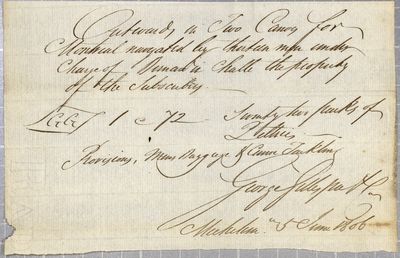 Outwards in Two Canoes for
Montreal navigated by thirteen men under
Charge of the property
of the Subscribers
1 @ 72 Sundry pack's of
Peltries
Provisions, Mens Baggage & Canoe Tackling
George Gillespie & Co
5 June 1806